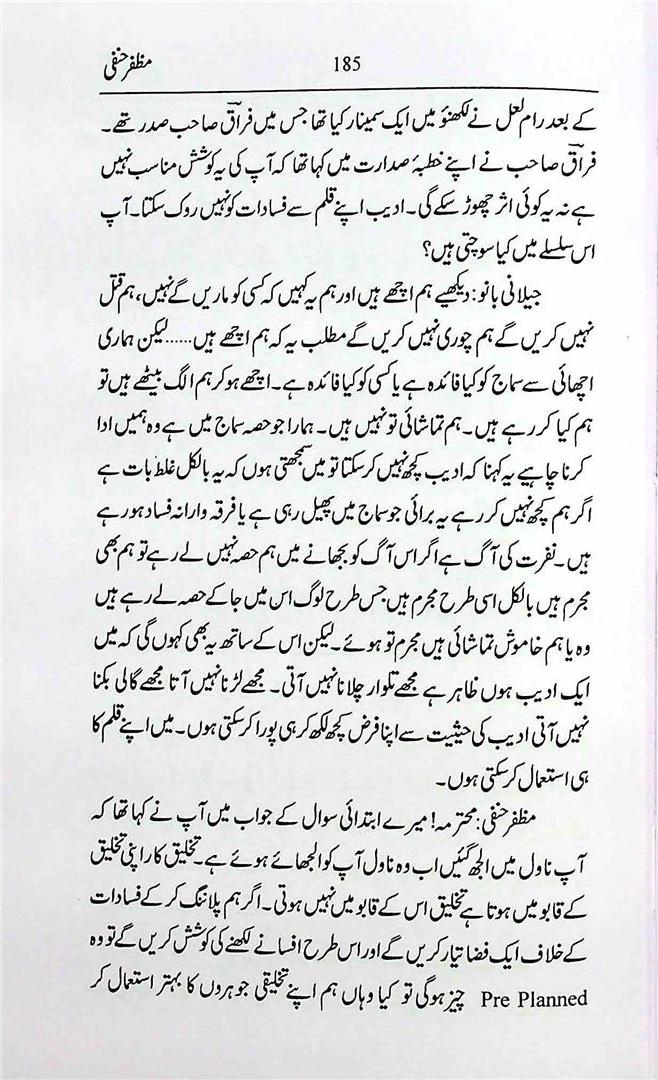 مظفر حنفی 185
کے بعد رام لعل نے لکھنؤ میں ایک سمینار کیا تھا جس میں فراقؔ صاحب صدر تھے۔
فراقؔ صاحب نے اپنے خطبۂ صدارت میں کہا تھا کہ آپ کی یہ کوشش مناسب نہیں
ہے نہ یہ کوئی اثر چھوڑ سکے گی۔ ادیب اپنے قلم سے فسادات کو نہیں روک سکتا۔ آپ
اس سلسلے میں کیا سوچتی ہیں؟
جیلانی بانو: دیکھیے ہم اچھے ہیں اور ہم یہ کہیں کہ کسی کو ماریں گے نہیں، ہم قتل
نہیں کریں گے ہم چوری نہیں کریں گے مطلب یہ کہ ہم اچھے ہیں...... لیکن ہماری
اچھائی سے سماج کو کیا فائدہ ہے یا کسی کو کیا فائدہ ہے۔ اچھے ہو کر ہم الگ بیٹھے ہیں تو
ہم کیا کر رہے ہیں۔ ہم تماشائی تو نہیں ہیں۔ ہمارا جو حصہ سماج میں ہے وہ ہمیں ادا
کرنا چاہیے یہ کہنا کہ ادیب کچھ نہیں کر سکتا تو میں سمجھتی ہوں کہ یہ بالکل غلط بات ہے
اگر ہم کچھ نہیں کر رہے یہ برائی جو سماج میں پھیل رہی ہے یا فرقہ وارانہ فساد ہو رہے
ہیں۔ نفرت کی آگ ہے اگر اس آگ کو بجھانے میں ہم حصہ نہیں لے رہے تو ہم بھی
مجرم ہیں بالکل اسی طرح مجرم ہیں جس طرح لوگ اس میں جا کے حصہ لے رہے ہیں
وہ یا ہم خاموش تماشائی ہیں مجرم تو ہوئے۔ لیکن اس کے ساتھ یہ بھی کہوں گی کہ میں
ایک ادیب ہوں ظاہر ہے مجھے تلوار چلانا نہیں آتی۔ مجھے لڑنا نہیں آتا مجھے گالی بکنا
نہیں آتی ادیب کی حیثیت سے اپنا فرض کچھ لکھ کر ہی پورا کر سکتی ہوں۔ میں اپنے قلم کا
ہی استعمال کر سکتی ہوں۔
مظفر حنفی: محترمہ! میرے ابتدائی سوال کے جواب میں آپ نے کہا تھا کہ
آپ ناول میں الجھ گئیں اب وہ ناول آپ کو الجھائے ہوئے ہے۔ تخلیق کار اپنی تخلیق
کے قابو میں ہوتا ہے تخلیق اس کے قابو میں نہیں ہوتی۔ اگر ہم پلاننگ کر کے فسادات
کے خلاف ایک فضا تیار کریں گے اور اس طرح افسانے لکھنے کی کوشش کریں گے تو وہ
Pre Planned چیز ہوگی تو کیا وہاں ہم اپنے تخلیقی جوہروں کا بہتر استعمال کر